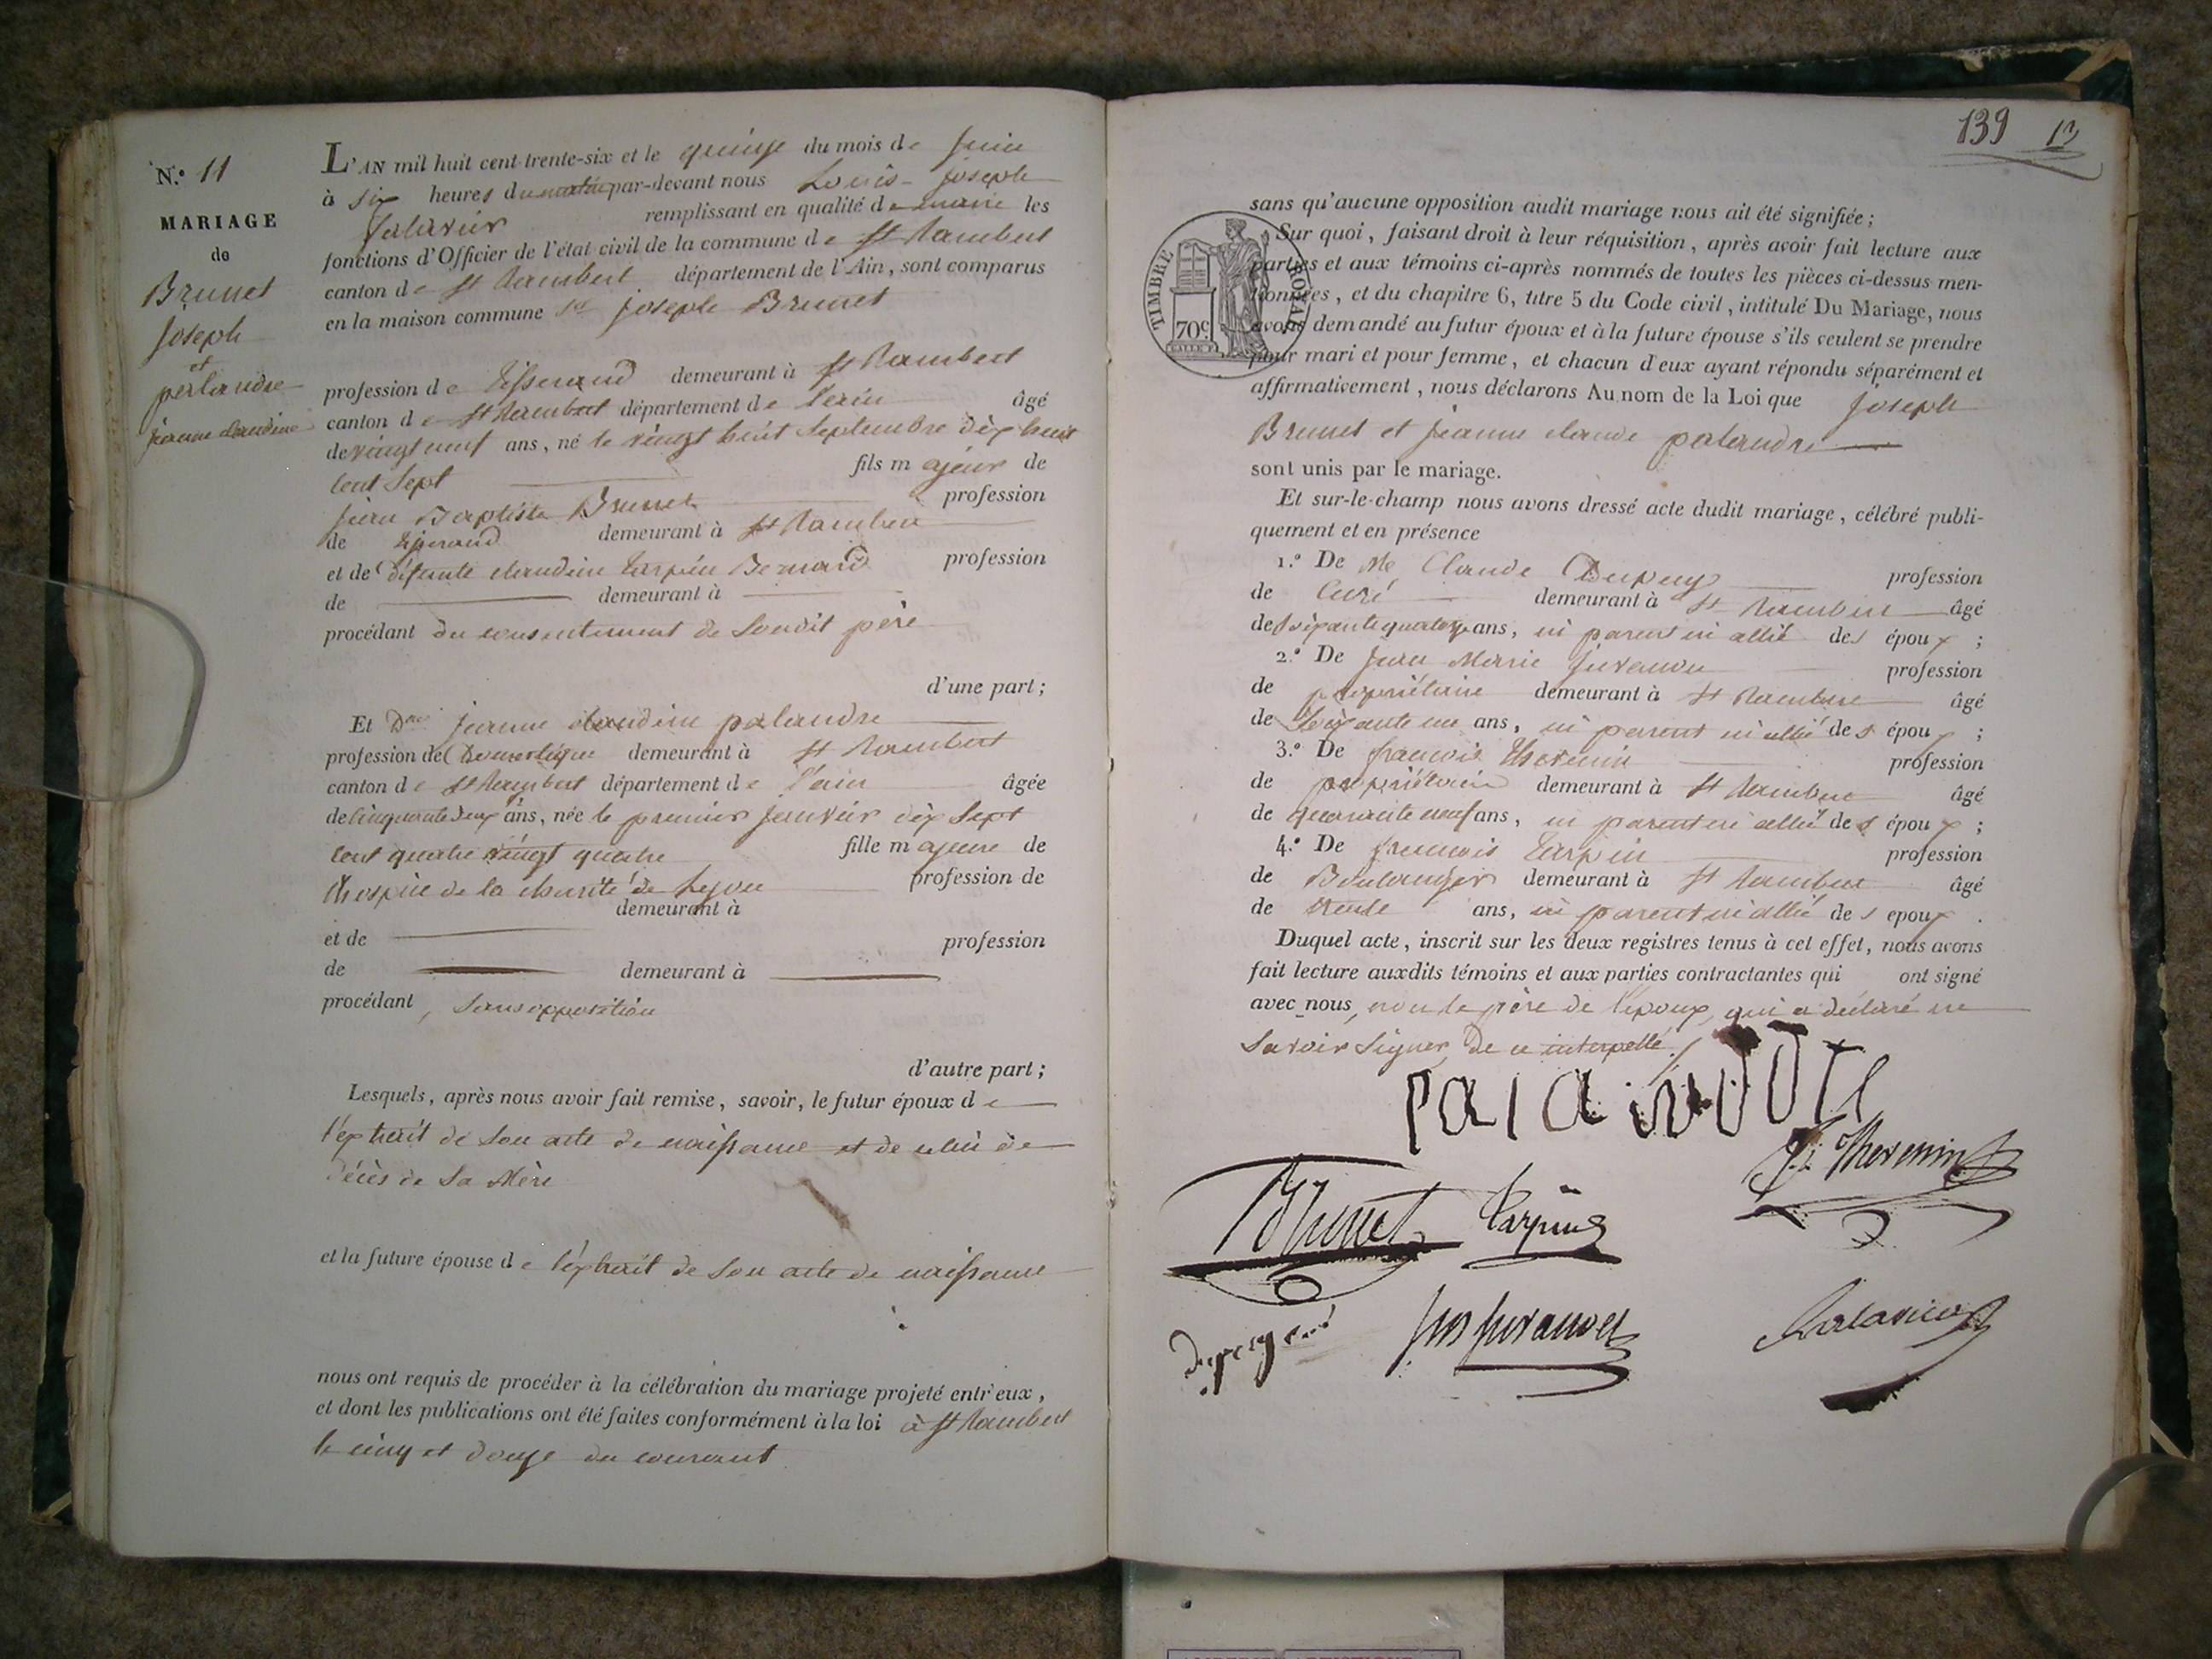 N.° 11
MARIAGE
de
Brunet
Joseph
et
palandre
jeanne claudine
L'AN mil huit cent trente-six et le quinze du mois de Juin
à six heures du matin par-devant nous Louis-Joseph
remplissant en qualité de maire les
fonctions d'Officier de l'état civil de la commune de St Rambert
canton de St Rambert département de l'Ain, sont comparus
en la maison commune Sr Joseph Brunet
profession de tisserand demeurant à St Rambert
canton de St Rambert département de l'ain âgé
de vingt neuf ans, né le vingt huit Septembre dix huit
cent Sept fils majeur de
jean Baptiste Brunet profession
de tisserand demeurant à St Rambert
et de défunte claudine tarpin Bernard profession
de demeurant à
procédant du consentement de Sondit père
d'une part ;
Et Dlle jeanne claudine palandre
profession de Domestique demeurant à St Rambert
canton de St Rambert département de l'ain âgée
de Cinquante deux ans, née le premier Janvier dix Sept
cent quatre vingt quatre fille majeure de
l'hospice de la charité de Lyon profession de
demeurant à
et de profession
de demeurant à
procédant, Sans opposition
d'autre part ;
Lesquels, après nous avoir fait remise, savoir, le futur époux de
l'extrait de Son acte de naissance et de celui de
décès de Sa Mère
et la future épouse de l'extrait de Son acte de naissance
nous ont requis de procéder à la célébration du mariage projeté entr'eux,
et dont les publications ont été faites conformément à la loi à St Rambert
le cinq et douze du courant
139 13
TIMBRE ROYAL
70c
sans qu'aucune opposition audit mariage nous ait été signifiée ;
Sur quoi, faisant droit à leur réquisition, après avoir fait lecture aux
parties et aux témoins ci-après nommés de toutes les pièces ci-dessus men-
tionnées, et du chapitre 6, titre 5 du Code civil, intitulé Du Mariage, nous
avons demandé au futur époux et à la future épouse s'ils veulent se prendre
pour mari et pour femme, et chacun d'eux ayant répondu séparément et
affirmativement, nous déclarons Au nom de la Loi que Joseph
Brunet et jeanne claude palandre
sont unis par le mariage.
Et sur-le-champ nous avons dressé acte dudit mariage, célébré publi-
quement et en présence
1.° De Me Claude Dupuy profession
de Curé demeurant à St Rambert âgé
de Soixante quatorze ans, ni parent ni allié des époux ;
2.° De Jean Marie Juvanon profession
de propriétaire demeurant à St Rambert âgé
de Soixante un ans, ni parent ni allié des époux ;
3.° De françois thevenin profession
de propriétaire demeurant à St Rambert âgé
de quarante neuf ans, ni parent ni allié des époux ;
4.° De françois tarpin profession
de Boulanger demeurant à St Rambert âgé
de trente ans, ni parent ni allié des epoux .
Duquel acte, inscrit sur les deux registres tenus à cet effet, nous avons
fait lecture auxdits témoins et aux parties contractantes qui ont signé
avec nous, non le père de l'époux, qui a déclaré ne
Savoir Signer, de ce interpellé
Thevenin
Brunet tarpin